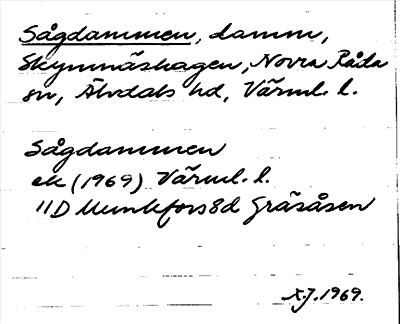 Sågdammen, damm,
Skymnäshagen, Norra Råda
sn, Älvdals hd, Värml. l.
Sågdammen
ek (1969) Värml. l.
11D Munkfors 8d Gräsåsen
1969.